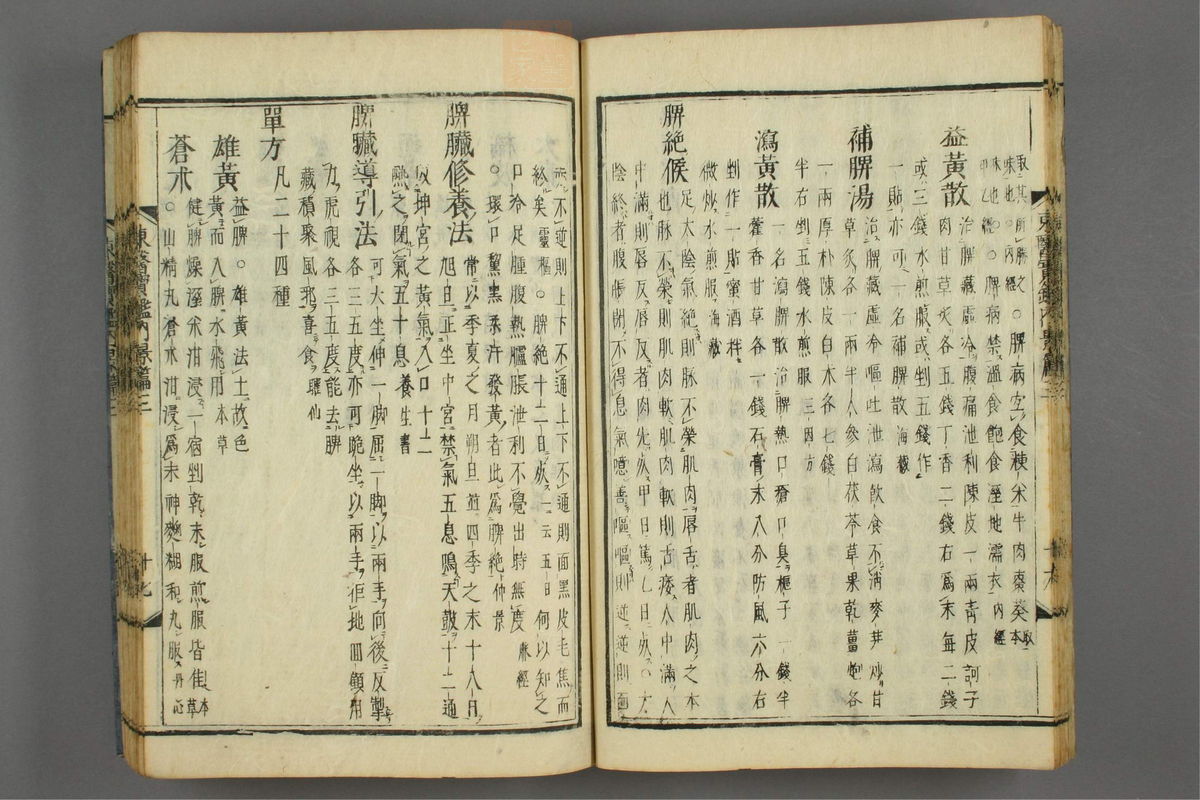 取其所勝之
味也○內經○脾病空食粳米牛肉棗葵本取
甲乙經○脾病禁溫食飽食溼地濡衣內經
益黃散治脾藏虛冷腹痛泄利陳皮一兩青皮訶子
肉甘草炙各五錢丁香二錢右爲末每二錢
或三錢水煎服或剉五錢作
一貼亦可一名補脾散海藏
補脾湯治脾藏虛冷嘔吐泄瀉飲食不消麥芽炒甘
草炙各一兩半人參白茯苓草果乾薑炮各
一兩厚朴陳皮白朮各七錢
半右剉五錢水煎服三因方
瀉黃散一名瀉脾散治脾熱口瘡口臭梔子一錢半
藿香甘草各一錢石膏末八分防風六分右
剉作一貼蜜酒拌
微炒水煎服海藏
脾絕候足太陰氣絕則脉不榮肌肉唇舌者肌肉之本
也脉不榮則肌肉軟肌肉軟則舌痿人中滿人
中滿則唇反唇反者肉先死甲日篤乙日死○太
陰終者腹脹閉不得息氣噫善嘔嘔則逆逆則面
赤不逆則上下不通上下不通則面黑皮毛焦而
終矣靈樞○脾絕十二日死一云五日何以知之
口冷足腫腹熱臚脹泄利不覺出時無度脉經
○環口黧黑柔汗發黃者此爲脾絕仲景
脾臟修養法常以季夏之月朔旦並四季之末十八日
旭旦正坐中宮禁氣五息鳴天鼓十二通
以坤宮之黃氣入口十二
嚥之閉氣五十息養生書
脾臟導引法可大坐伸一脚屈一脚以兩手向後反掣
各三五度亦可跪坐以兩手拒地回顧用
力虎視各三五度能去脾
藏積聚風邪喜食臞仙
單方凡二十四種
雄黃益脾○雄黃法土故色
黃而入脾水飛用本草
蒼朮健脾燥溼米泔浸一宿剉乾末服煎服皆佳本草
○山精丸蒼朮泔浸爲末神麴糊和丸服丹心
東醫寶鑑內景篇三
十六
東醫寶鑑內景篇三
十七